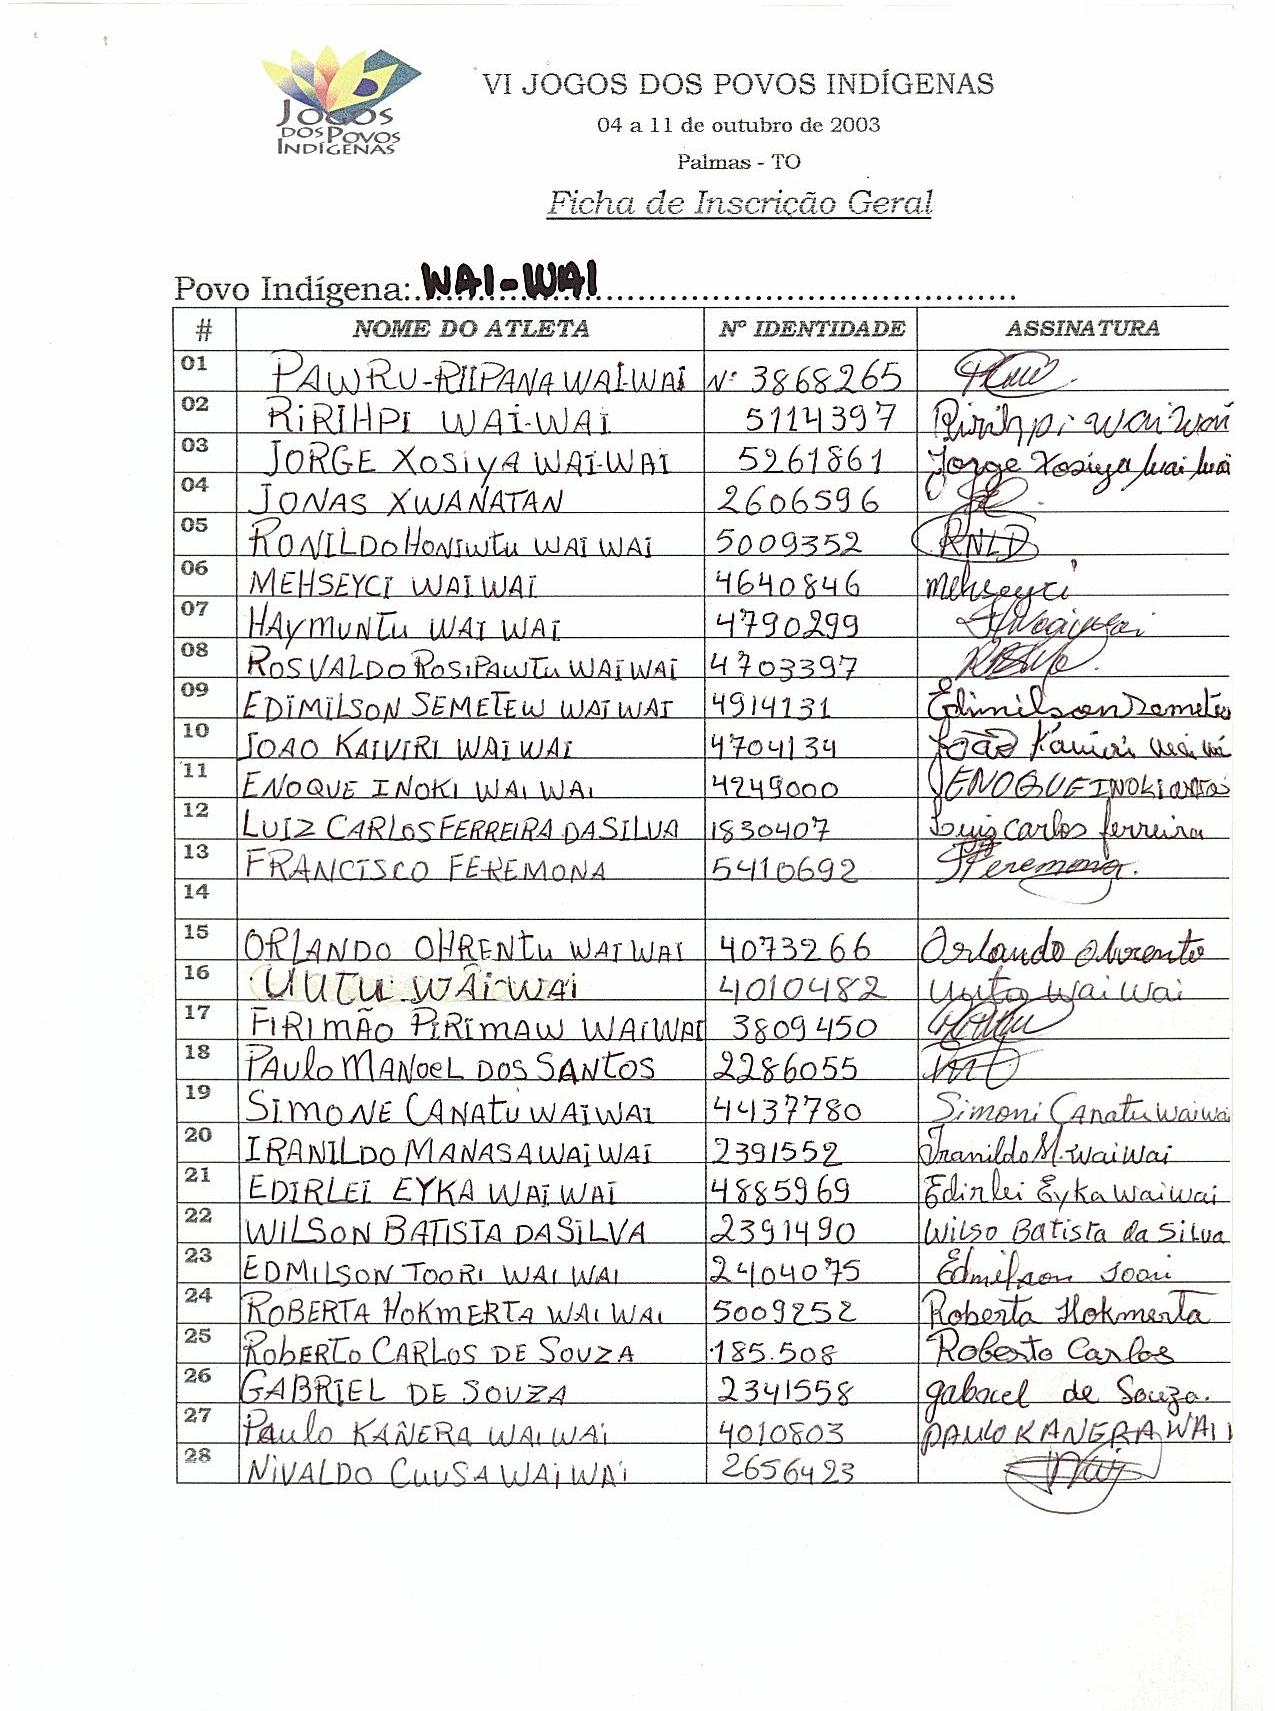 JOGOS
DOS POVOS
INDÍGENAS
VI JOGOS DOS POVOS INDÍGENAS
04 a 11 de outubro de 2003
Palmas - TO
Ficha de Inscrição Geral
Povo Indígena: WAI-WAI
# NOME DO ATLETA Nº IDENTIDADE ASSINATURA
01 PAWRU-RIIPANA WAI-WAI Nº 3868265
02 RIRIHPI WAI-WAI 5114397 Ririhpi Wai Wai
03 JORGE XOSIYA WAI-WAI 5261861 Jorge Xosiya Wai Wai
04 JONAS XWANATAN 2606596
05 RONILDO HONIWTU WAI WAI 5009352 RNLD
06 MEHSEYCI WAI WAI 4640846 Mehseyci
07 HAYMUNTU WAI WAI 4790299
08 ROSVALDO ROSIPAWTU WAI WAI 4703397
09 EDIMILSON SEMETEW WAI WAI 4914131 Edimilson Semetew
10 JOAO KAIVIRI WAI WAI 4704134 João
11 ENOQUE INOKI WAI WAI 4249000 ENOQUE INOKI
12 LUIZ CARLOS FERREIRA DA SILVA 1830407 Luiz Carlos ferreira
13 FRANCISCO FEREMONA 5410692 Feremona.
14
15 ORLANDO OHRENTU WAI WAI 4073266 Orlando Ohrento
16 UUTU WAI-WAI 4010482 Wai Wai
17 FIRIMÃO PIRIMAW WAI WAI 3809450
18 PAULO MANOEL DOS SANTOS 2286055
19 SIMONE CANATU WAI WAI 4437780 Simoni Canatu wai wai
20 IRANILDO MANASA WAI WAI 2391552 Iranildo M. Wai Wai
21 EDIRLEI EYKA WAI WAI 4885969 Edirlei Eyka Wai Wai
22 WILSON BATISTA DA SILVA 2391490 Wilso Batista da Silva
23 EDMILSON TOORI WAI WAI 2404075 Edmilson Toori
24 ROBERTA HOKMERTA WAI WAI 5009252 Roberta Hokmerta
25 ROBERTO CARLOS DE SOUZA 185.508 Roberto Carlos
26 GABRIEL DE SOUZA 2341558 gabriel de Souza.
27 Paulo KAÑERA WAI WAI 4010803 PAULO KANERA WAI
28 NIVALDO CUUSA WAI WAI 2656423